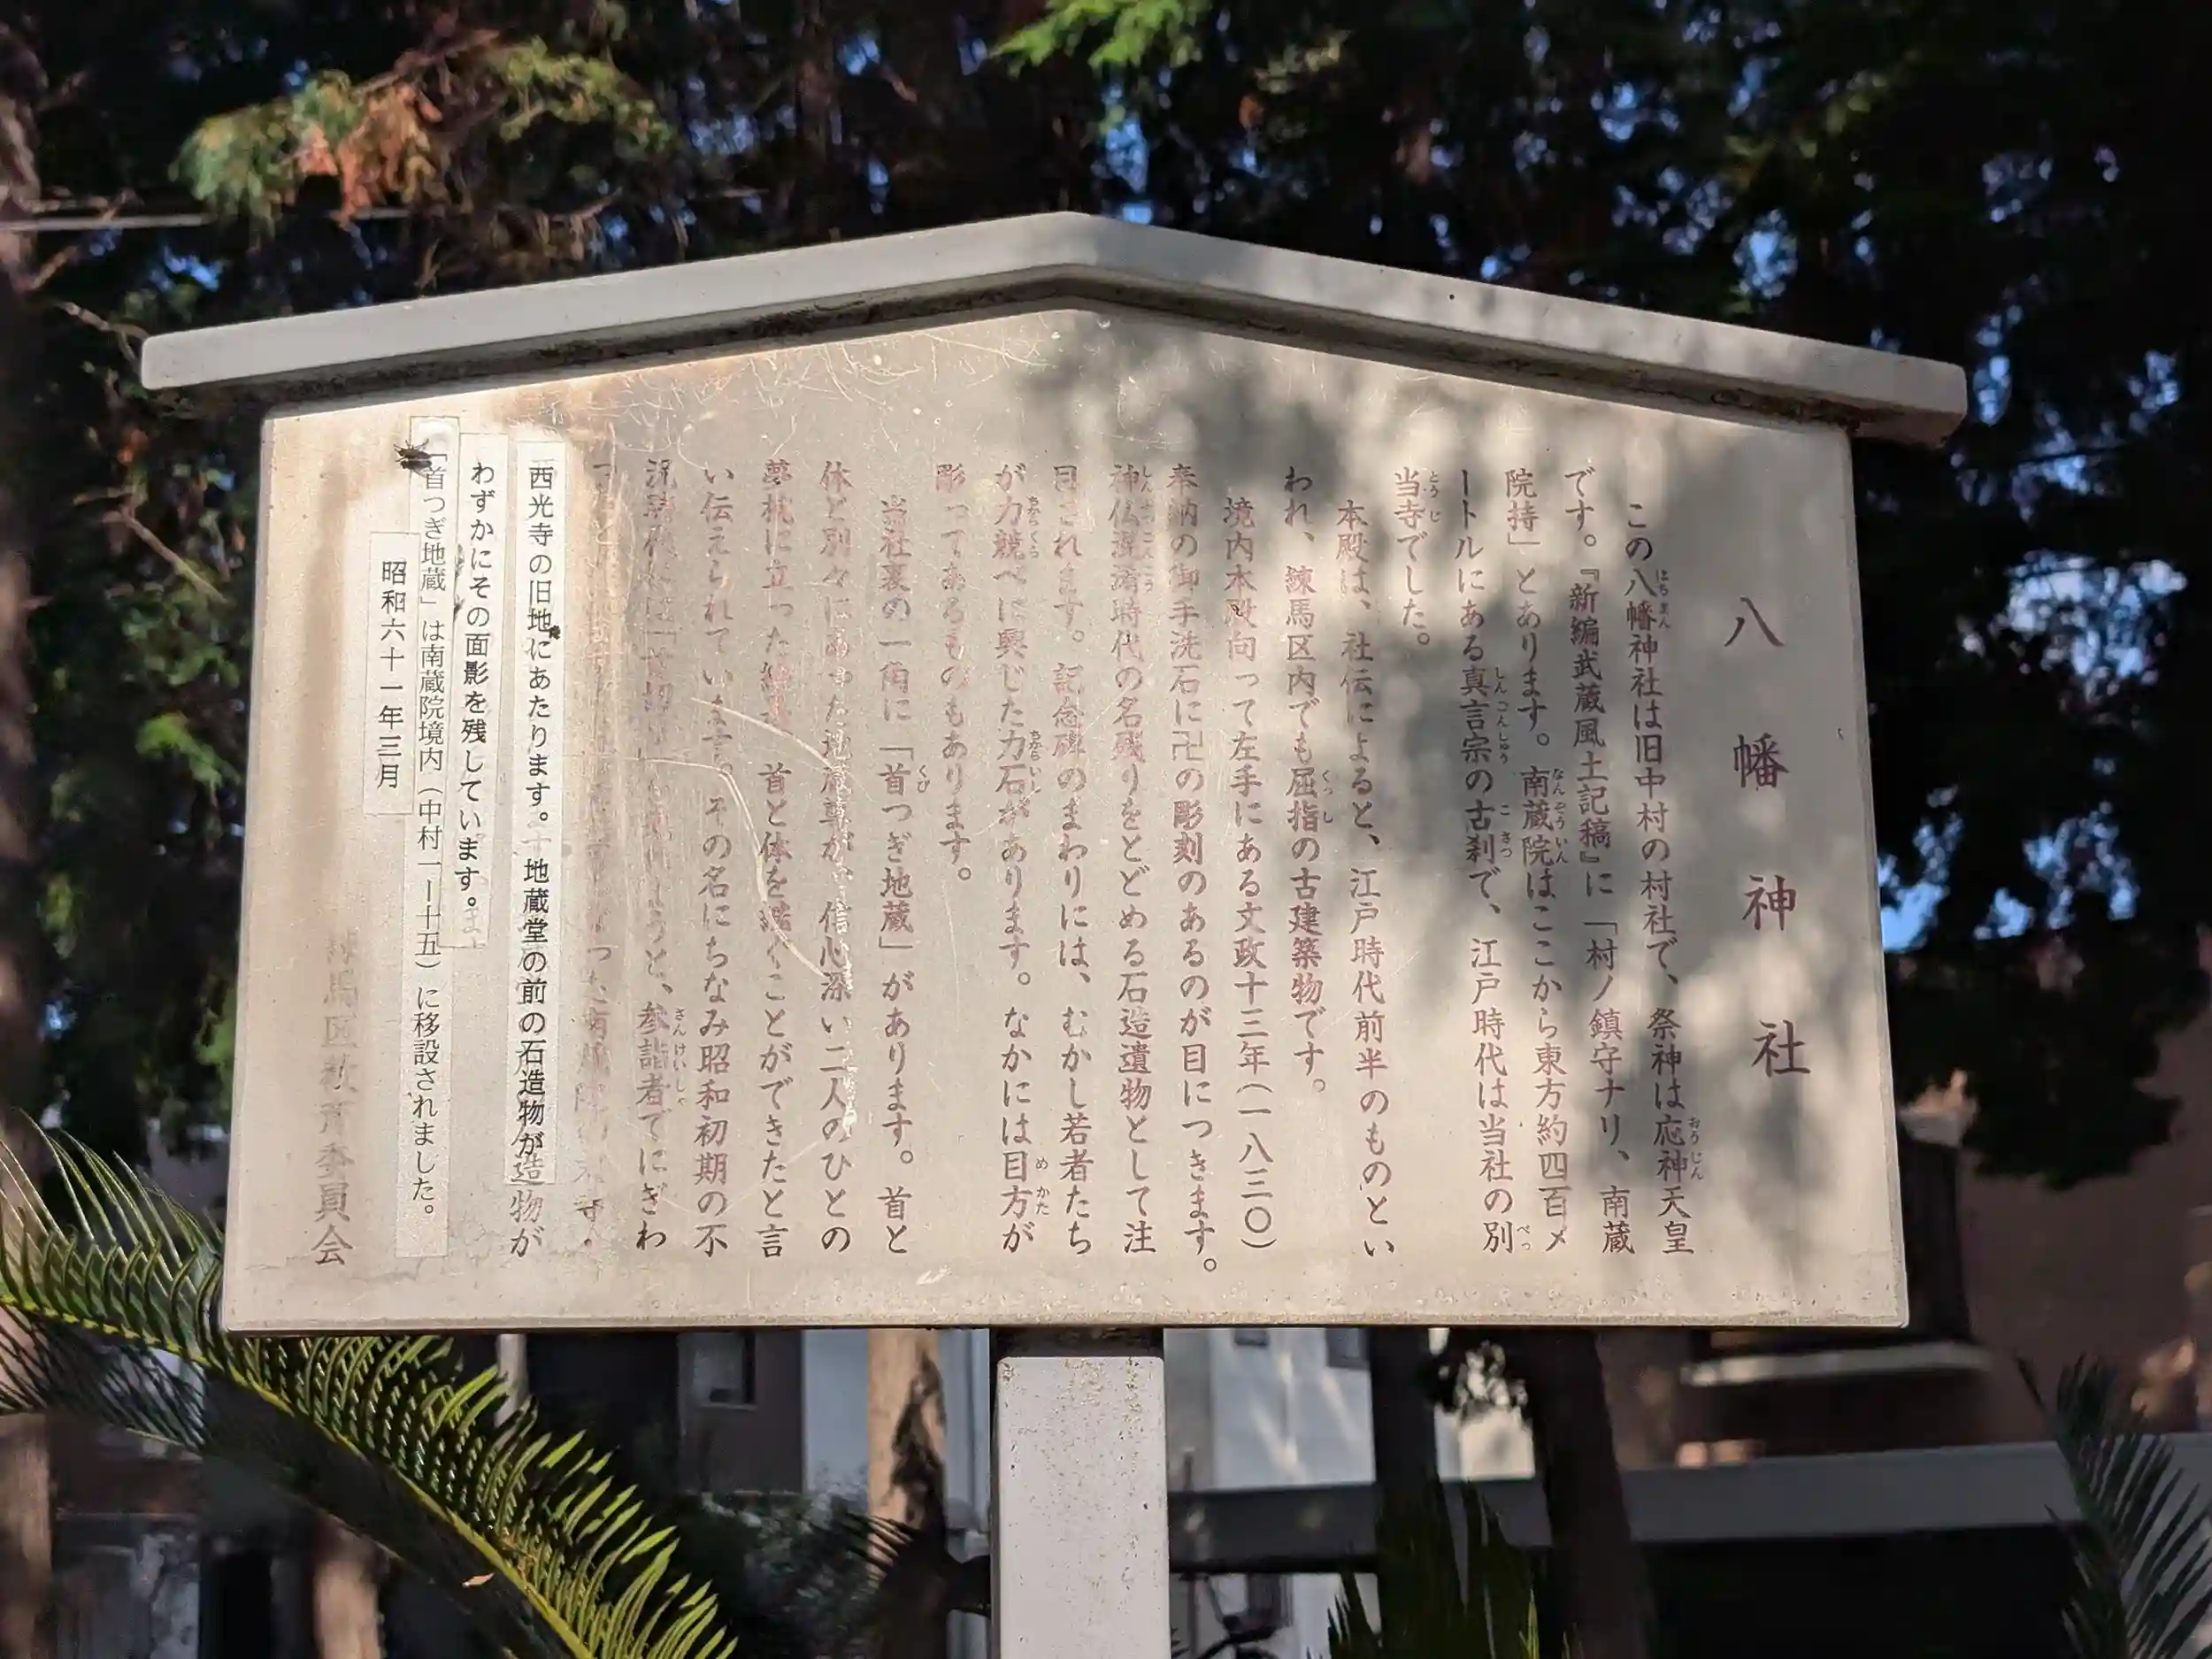 八幡神社
この八幡神社は旧中村の村社で、祭神は応神天皇
です。『新編武蔵風土記稿』に「村ノ鎮守ナリ、南蔵
院持」とあります。南蔵院はここから東方約四百メ
ートルにある真言宗の古刹で、江戸時代は当社の別
当寺でした。
本殿は、社伝によると、江戸時代前半のものとい
われ、練馬区内でも屈指の古建築物です。
境内本殿向って左手にある文政十三年(一八三〇)
奉納の御手洗石に卍の彫刻のあるのが目につきます。
神仏混淆時代の名残りをとどめる石造遺物として注
目されます。記念碑のまわりには、むかし若者たち
が力競べに興じた力石があります。なかには目方が
彫ってあるものもあります。
当社裏の一角に「首つぎ地蔵」があります。首と
体と別々にあった地蔵尊が、信心深い二人のひとの
夢枕に立った結果、首と体を継ぐことができたと言
い伝えられています。その名にちなみ昭和初期の不
況時代には うと、参詣者でにぎわ
西光寺の旧地にあたります。地蔵堂の前の石造物が
わずかにその面影を残しています。
「首つぎ地蔵」は南蔵院境内(中村一ー十五)に移設されました。
昭和六十一年三月
練馬区教育委員会